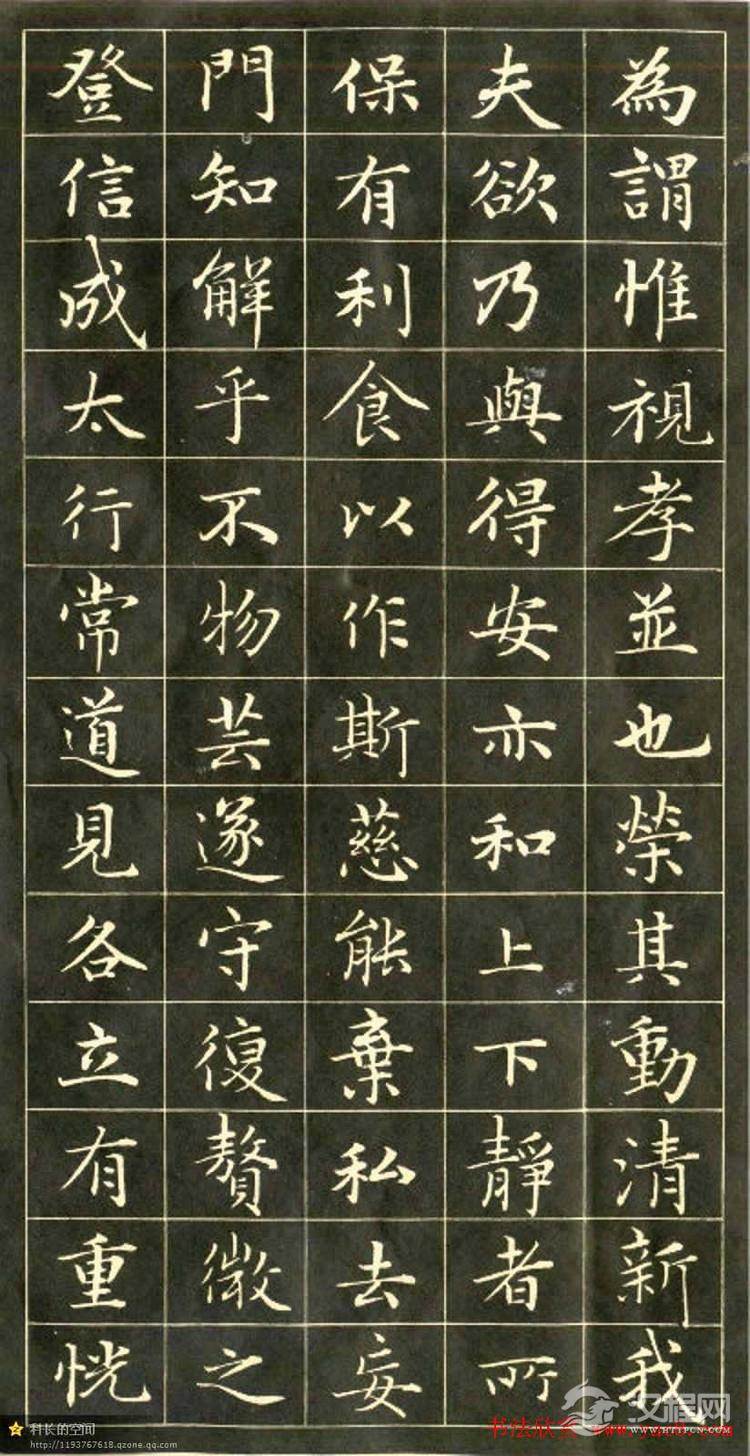 為謂惟視孝並也榮其動清新我
夫欲乃與得安亦和上下靜者所
保有利食以作斯慈能棄私去妄
門知解乎不物芸遂守復贅微之
登信成太行常道見各立有重恍
科长的空间
http://1193767618.qzone.qq.com
书法欣赏
汉程网
WWW.HTTPCN.COM